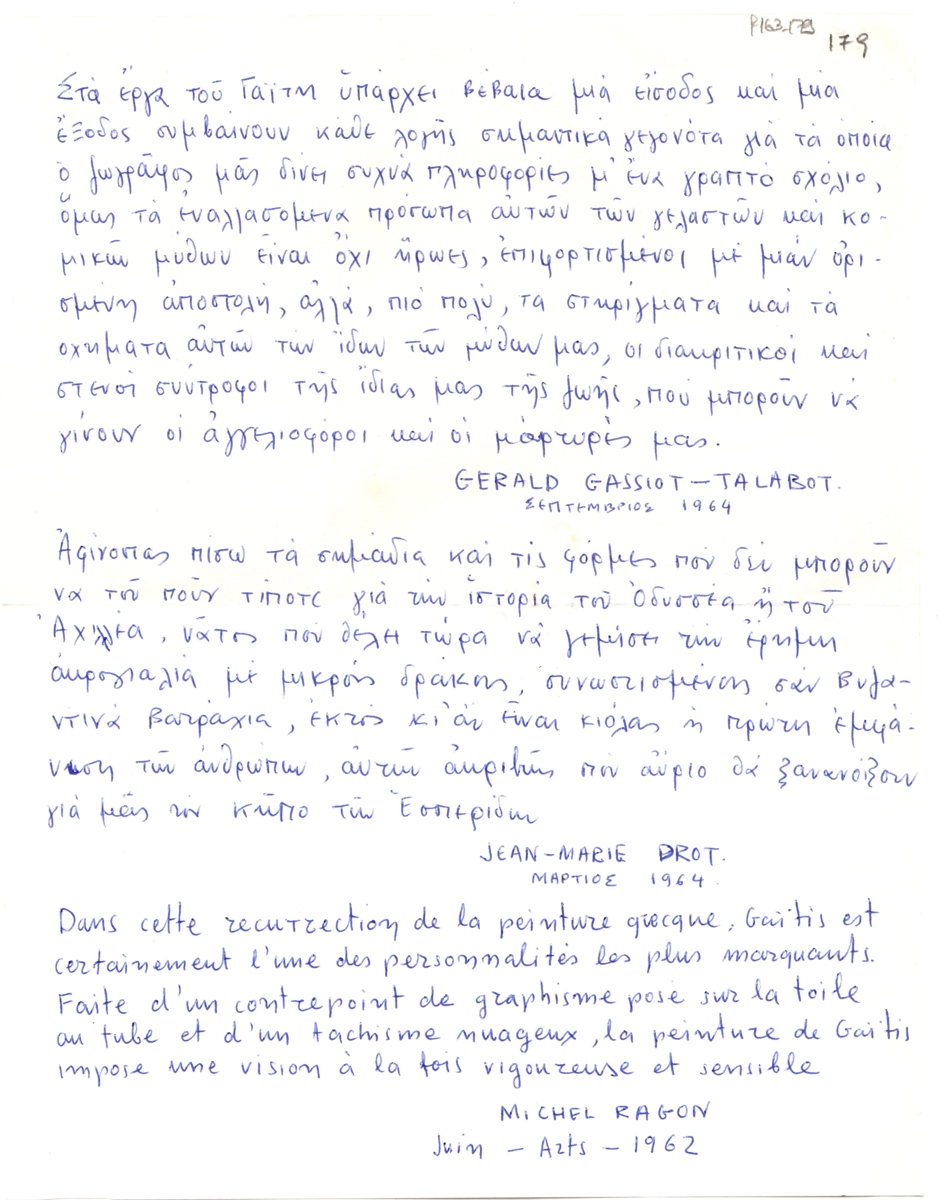 P163-179
179
Στὰ ἔργα τοῦ Γαΐτη ὑπάρχει βέβαια μιὰ εἴσοδος καὶ μιὰ
ἔξοδος συμβαίνουν κάθε λογῆς σημαντικὰ γεγονότα γιὰ τὰ ὁποῖα
ὁ ζωγράφος μᾶς δίνει συχνὰ πληροφορίες μ' ἕνα γραπτὸ σχόλιο,
ὅμως τὰ ἐναλλασόμενα πρόσωπα αὐτῶν τῶν γελαστῶν καὶ κο-
μικῶν μύθων εἶναι ὄχι ἥρωες, ἐπιφορτισμένοι μὲ μιὰν ὁρι-
σμένη ἀποστολή, ἀλλά, πιὸ πολύ, τα στηρίγματα καὶ τὰ
οχήματα αὐτῶν τῶν ἴδιων τῶν μύθων μας, οἱ διακριτικοί καὶ
στενοὶ σύντροφοι τῆς ἴδιας μας τῆς ζωῆς, ποὺ μποροῦν νὰ
γίνουν οἱ ἀγγελιοφόροι καὶ οἱ μάρτυρές μας.
GERALD GASSIOT-TALABOT.
ΣΕΠΤΕΜΒΡΙΟΣ 1964
Ἀφίνοντας πίσω τὰ σημάδια καὶ τὶς φόρμες ποὺ δὲν μποροῦν
να τοῦ ποῦν τίποτε γιὰ τὴν ἱστορία τοῦ Ὀδυσσέα ἢ τοῦ
Ἀχιλλέα, νάτος ποὺ θέλει τώρα νὰ γεμίσει τὴν ἔρημη
ἀκρογιαλιά μὲ μικροὺς δράκους, συνωστισμένους σὰν Βυζα-
ντινὰ βατράχια, ἐκτὸς κι' ἂν εἶναι κιόλας ἡ πρώτη ἐμφά-
νιση τῶν ἀνθρώπων, αὐτῶν ἀκριβῶς ποὺ αὔριο θὰ ξανανοίξουν
γιὰ μᾶς τὸν κῆπο τῶν Ἑσπερίδων
JEAN-MARIE DROT.
ΜΑΡΤΙΟΣ 1964.
Dans cette recurrection de la peinture grecque, Gaïtis est
certainement l'une des personnalités les plus marquants.
Faite d'un contrepoint de graphisme posé sur la toile
au tube et d'un tachisme nuageux, la peinture de Gaïtis
impose une vision à la fois vigoureuse et sensible
MICHEL RAGON
Juin – Arts – 1962